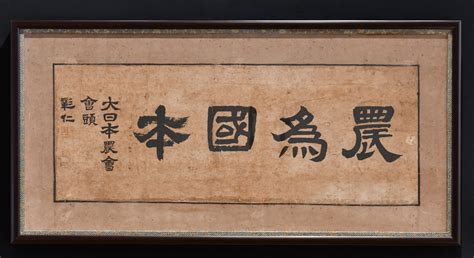 農為國本
大日本農會
會頭
彰仁